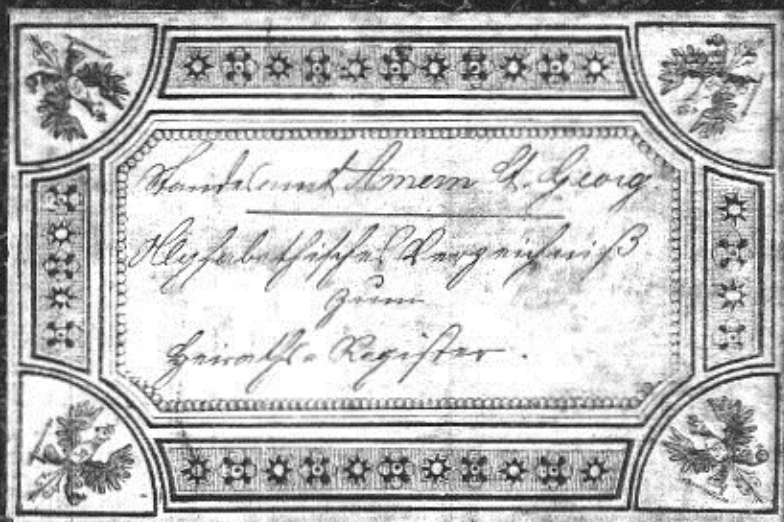 Standesamt Amern St. Georg.
Alphabethisches Verzeichniß
zum
Heiraths-Register.